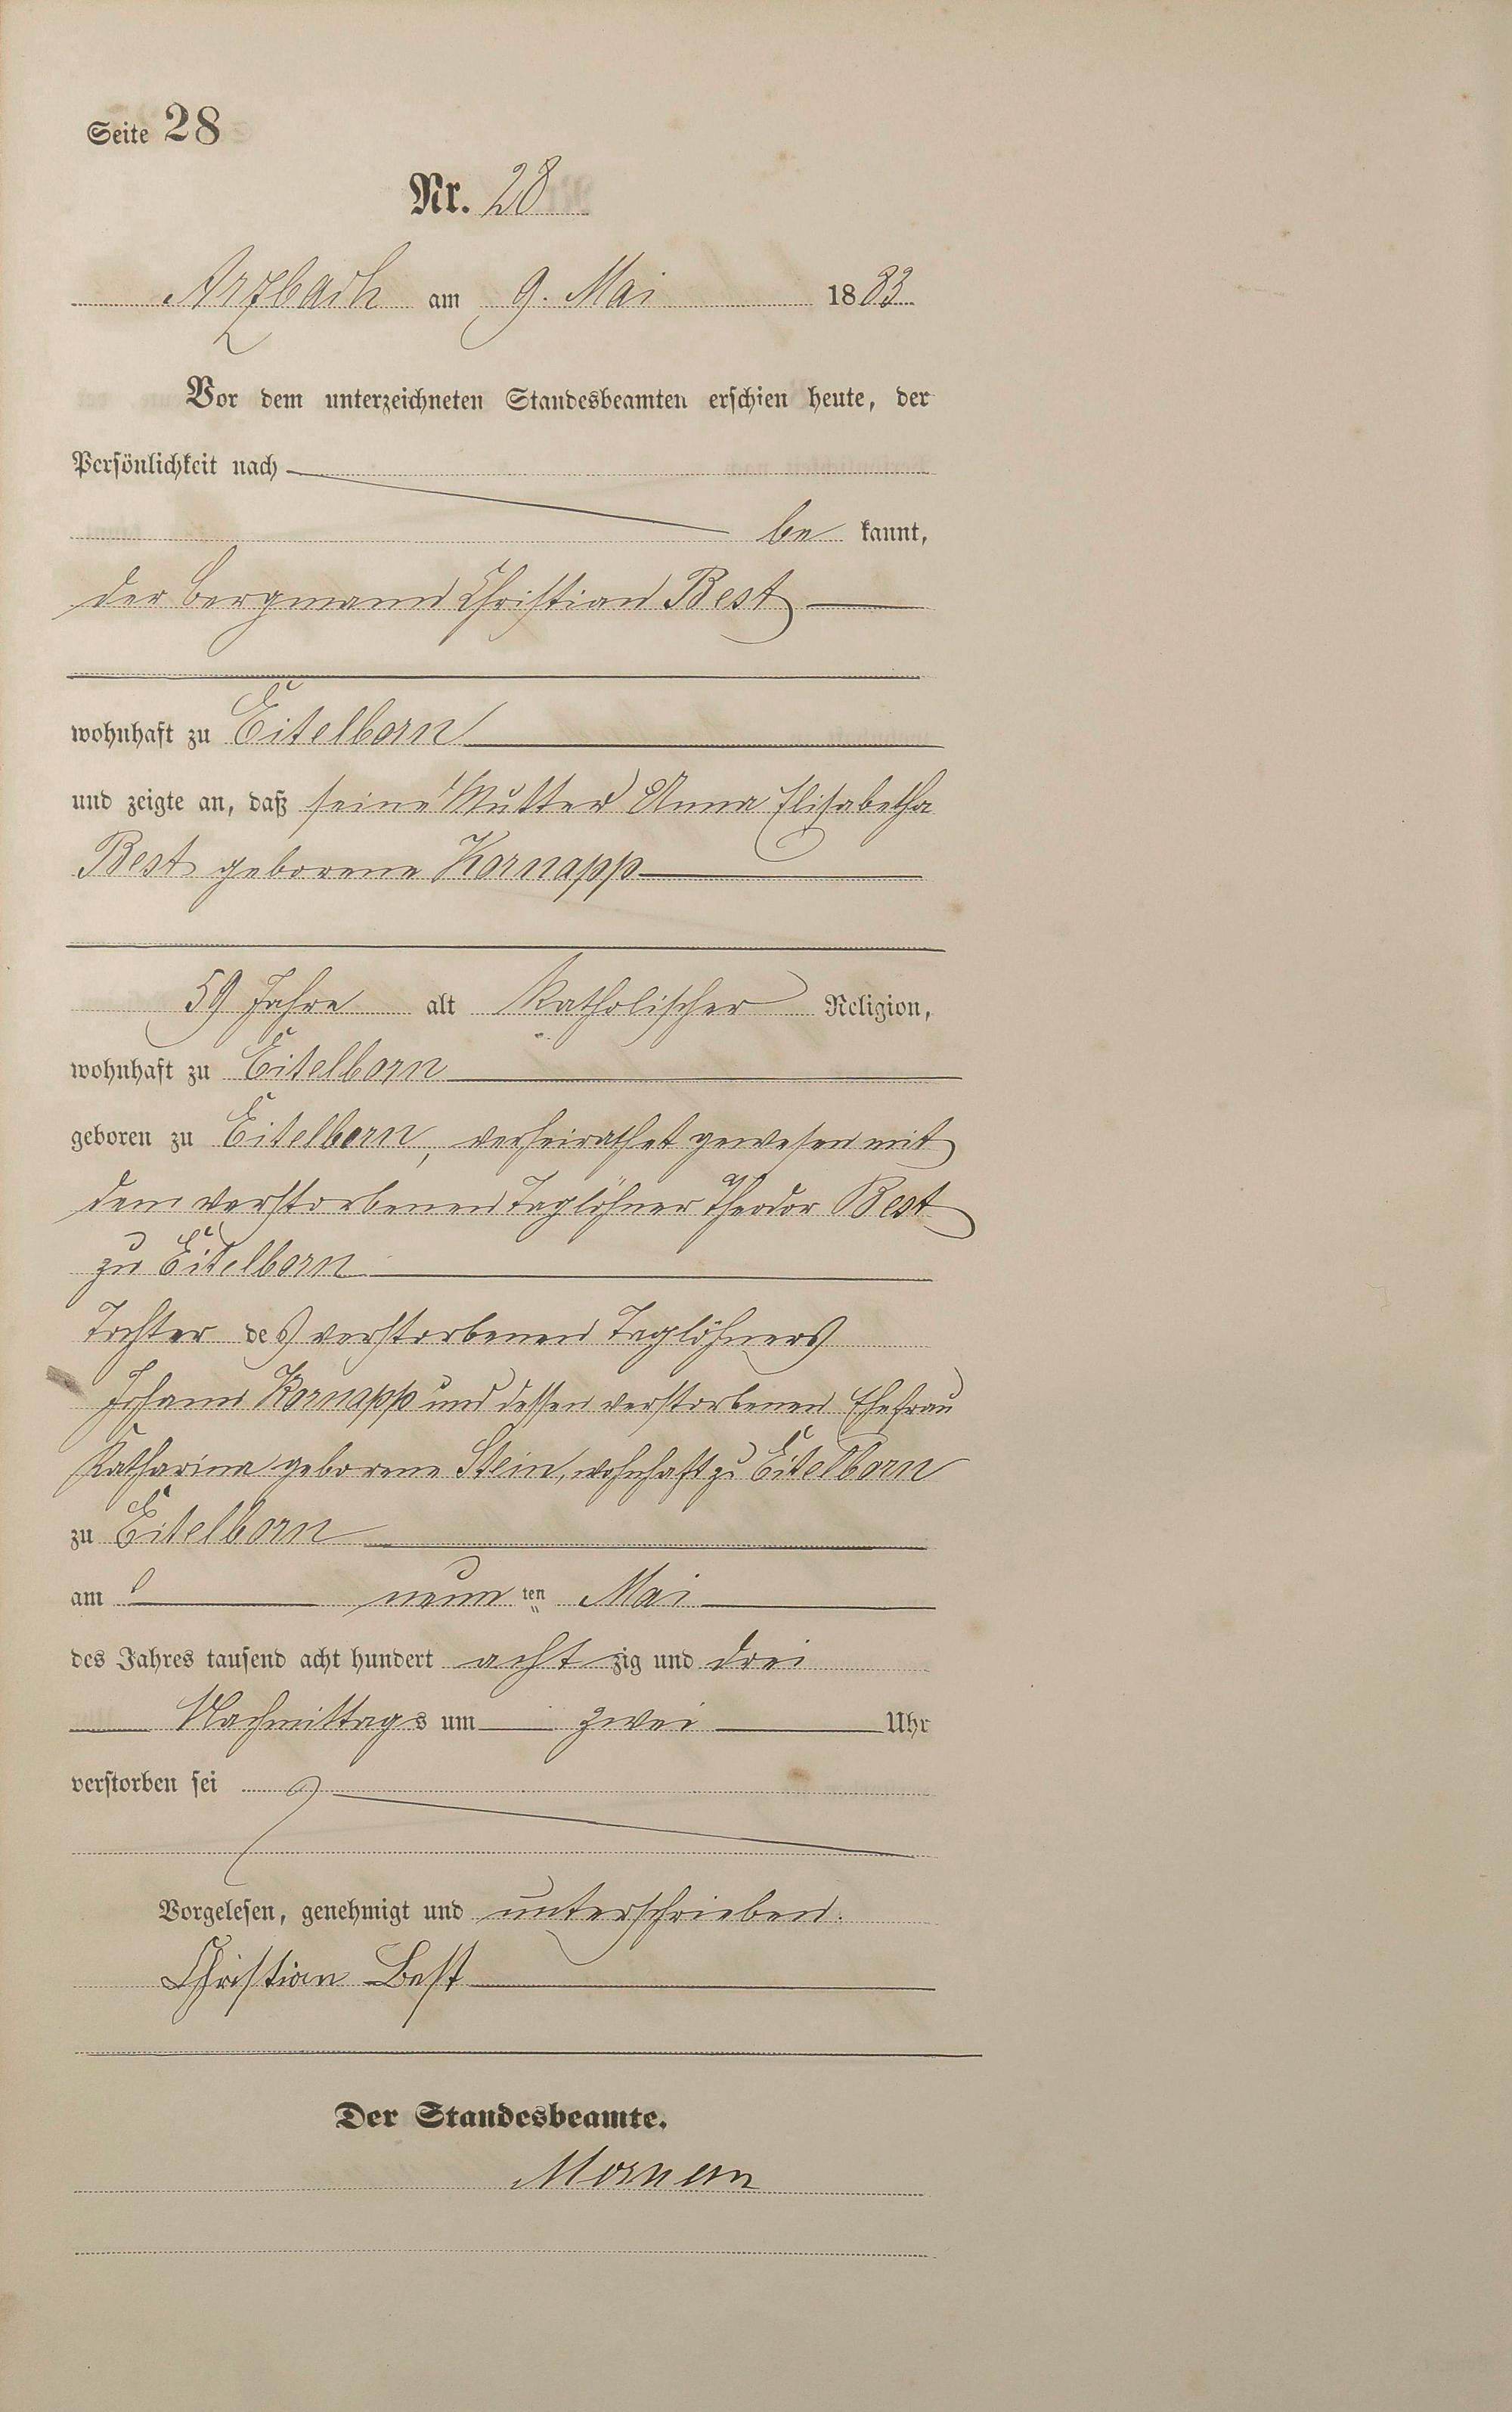 Seite 28
Nr. 28
Arzbach am 9. Mai 1883
Vor dem unterzeichneten Standesbeamten erschien heute, der
Persönlichkeit nach
be kannt,
der Bergmann Christian Best
wohnhaft zu Eitelborn
und zeigte an, daß seine Mutter Anna Elisabetha
Best geborene Kornapp
59 Jahre alt Katholischer Religion,
wohnhaft zu Eitelborn
geboren zu Eitelborn, verheirathet gewesen mit
dem verstorbenen Taglöhner Theodor Best
zu Eitelborn
Tochter des verstorbenen Taglöhners
Johann Kornapp und dessen verstorbenen Ehefrau
Katharina geborene Stein, wohnhaft zu Eitelborn
zu Eitelborn
am neun ten Mai
des Jahres tausend acht hundert acht zig und drei
Nachmittags um zwei Uhr
verstorben sei
Vorgelesen, genehmigt und unterschrieben.
Christian Best
Der Standesbeamte.